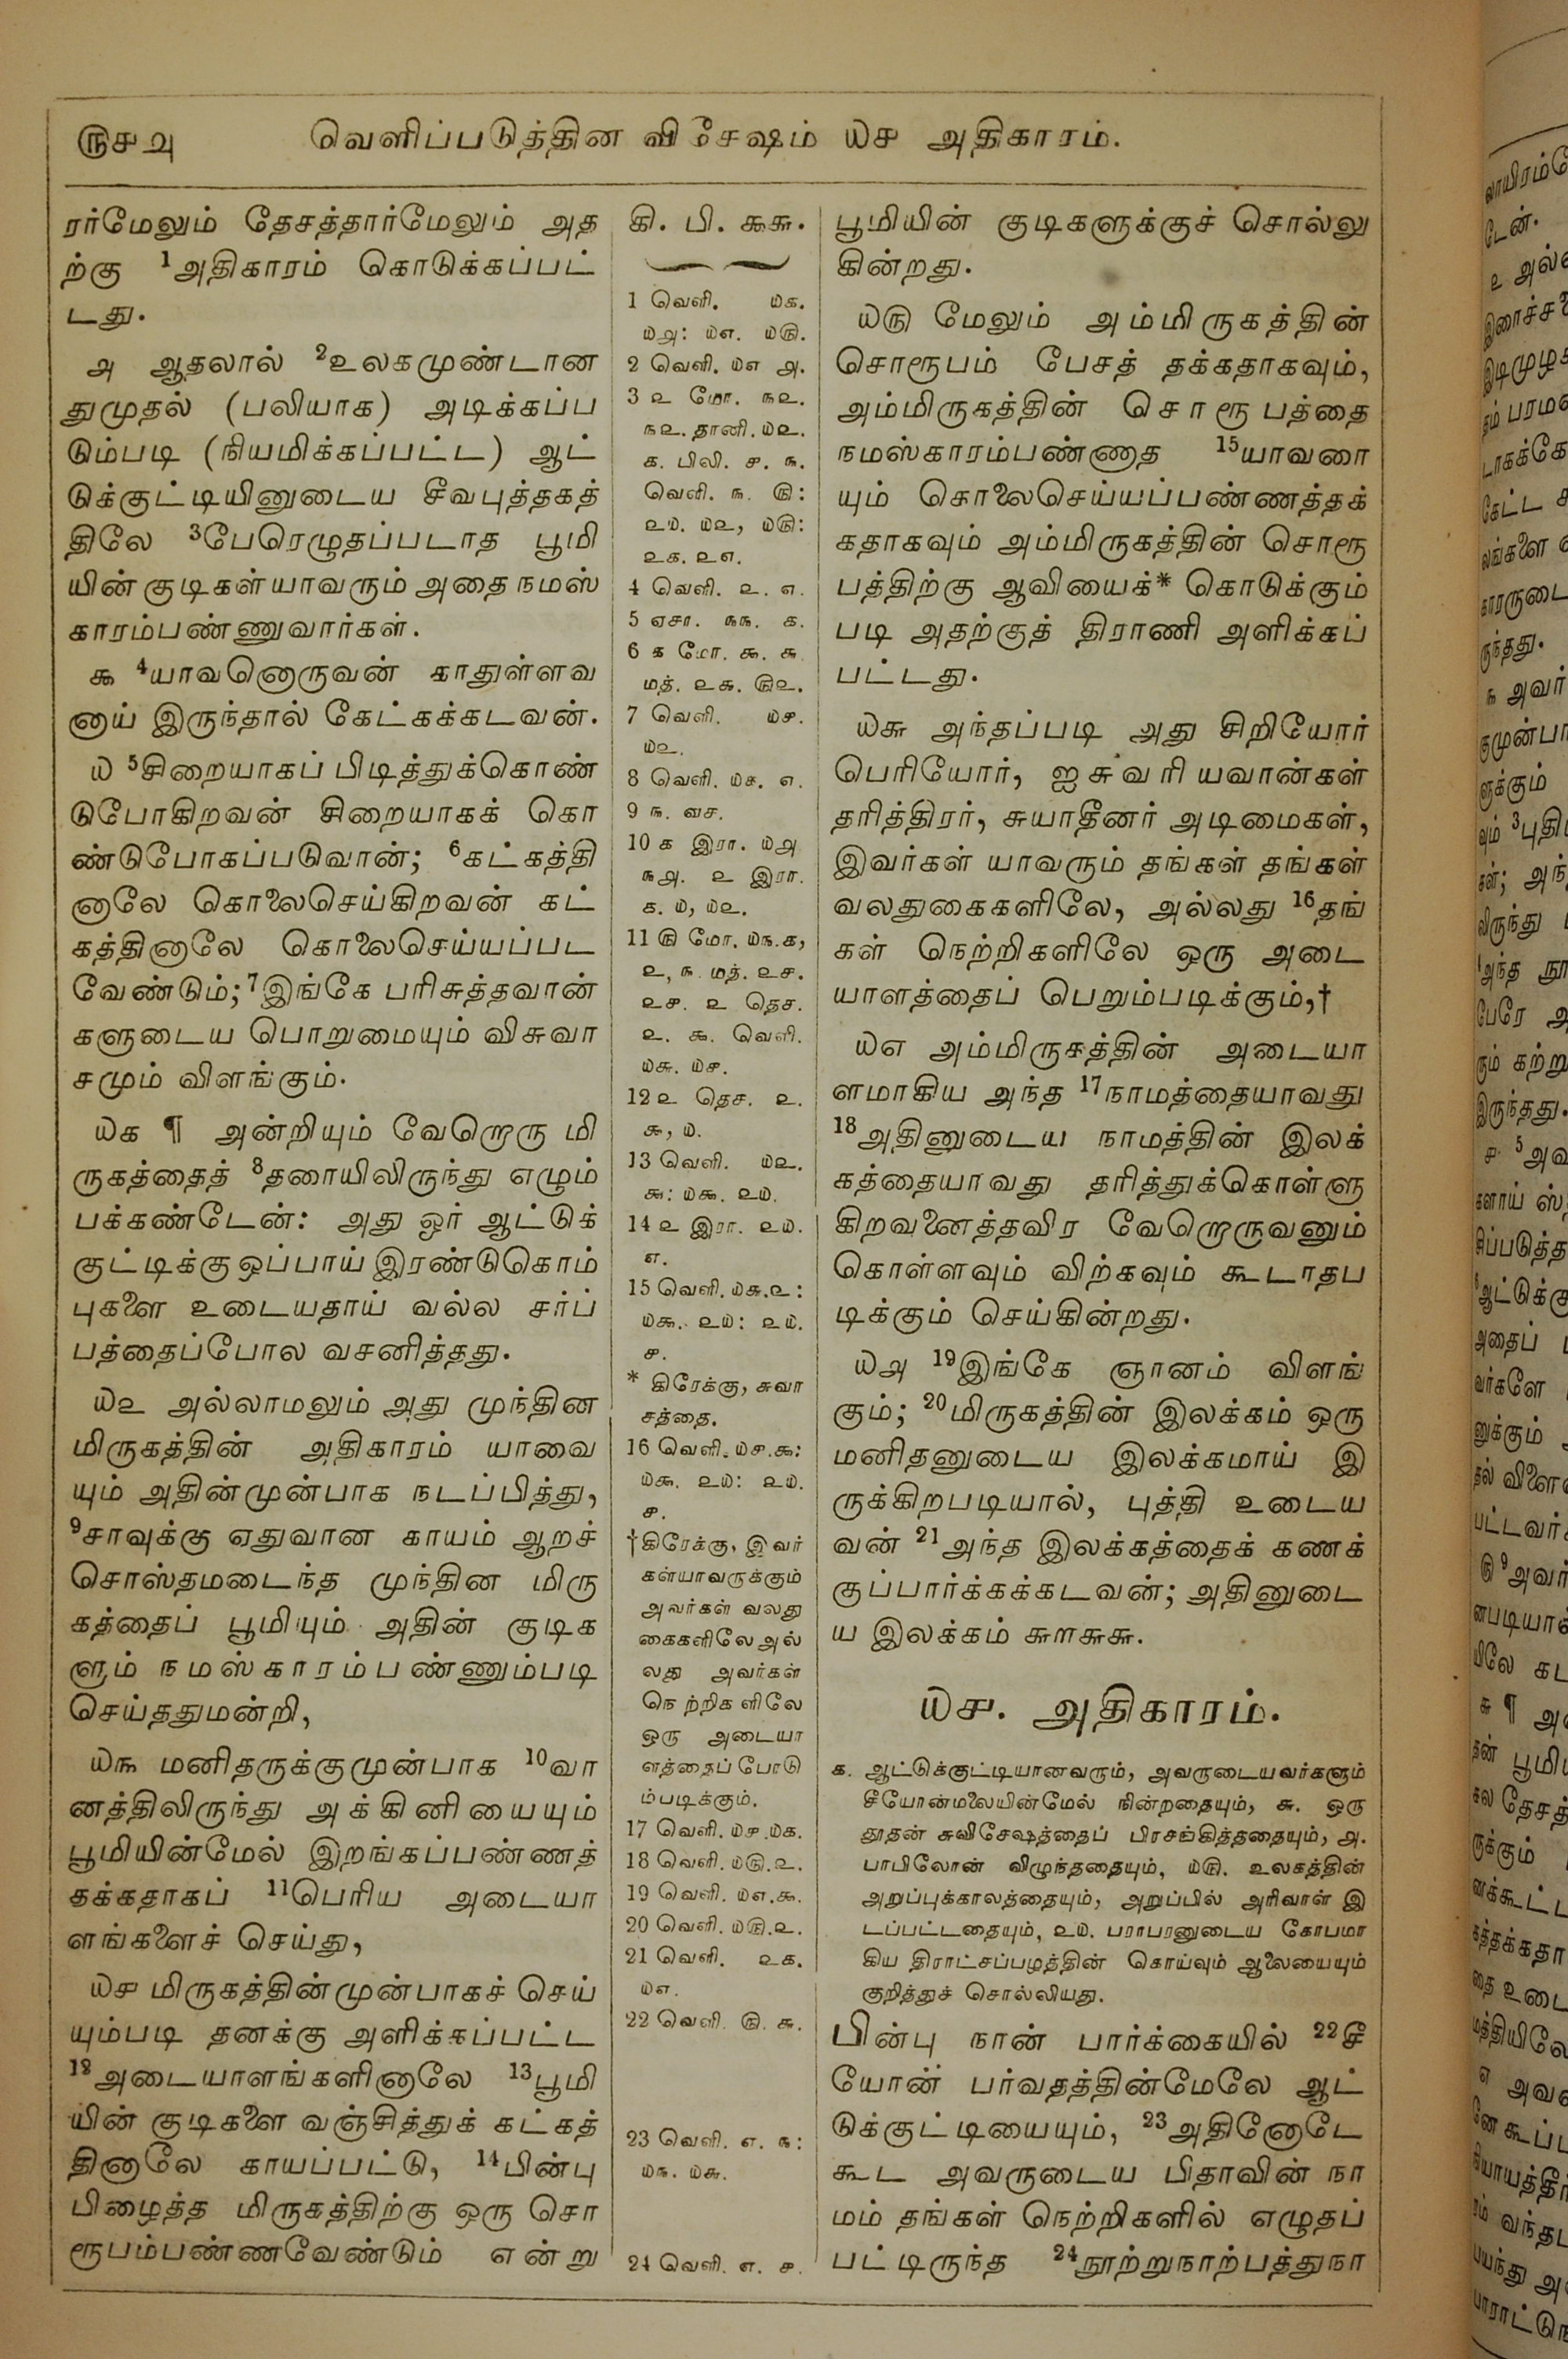 ௫௪௨ வெளிப்படுத்தின விசேஷம் ௰௪ அதிகாரம்.
ரர்மேலும் தேசத்தார்மேலும் அத
ற்கு 1அதிகாரம் கொடுக்கப்பட்
டது.
௮ ஆதலால் 2உலகமுண்டான
துமுதல் (பலியாக) அடிக்கப்ப
டும்படி (நியமிக்கப்பட்ட) ஆட்
டுக்குட்டியினுடைய சீவபுத்தகத்
திலே 3பேரெழுதப்படாத பூமி
யின் குடிகள் யாவரும் அதை நமஸ்
காரம்பண்ணுவார்கள்.
௯ 4யாவனொருவன் காதுள்ளவ
னாய் இருந்தால் கேட்கக்கடவன்.
௰ 5சிறையாகப் பிடித்துக்கொண்
டுபோகிறவன் சிறையாகக் கொ
ண்டுபோகப்படுவான்; 6கட்கத்தி
னாலே கொலைசெய்கிறவன் கட்
கத்தினாலே கொலைசெய்யப்பட
வேண்டும்; 7இங்கே பரிசுத்தவான்
களுடைய பொறுமையும் விசுவா
சமும் விளங்கும்.
௰௧ ¶ அன்றியும் வேறொரு மி
ருகத்தைத் 8தரையிலிருந்து எழும்
பக்கண்டேன்: அது ஓர் ஆட்டுக்
குட்டிக்கு ஒப்பாய் இரண்டுகொம்
புகளை உடையதாய் வல்ல சர்ப்
பத்தைப்போல வசனித்தது.
௰௨ அல்லாமலும் அது முந்தின
மிருகத்தின் அதிகாரம் யாவை
யும் அதின்முன்பாக நடப்பித்து,
9சாவுக்கு ஏதுவான காயம் ஆறச்
சொஸ்தமடைந்த முந்தின மிரு
கத்தைப் பூமியும் அதின் குடிக
ளும் நமஸ்காரம்பண்ணும்படி
செய்ததுமன்றி,
௰௩ மனிதருக்குமுன்பாக 10வா
னத்திலிருந்து அக்கினியையும்
பூமியின்மேல் இறங்கப்பண்ணத்
தக்கதாகப் 11பெரிய அடையா
ளங்களைச் செய்து,
௰௪ மிருகத்தின்முன்பாகச் செய்
யும்படி தனக்கு அளிக்கப்பட்ட
12அடையாளங்களினாலே 13பூமி
யின் குடிகளை வஞ்சித்துக் கட்கத்
தினாலே காயப்பட்டு, 14பின்பு
பிழைத்த மிருகத்திற்கு ஒரு சொ
ரூபம்பண்ணவேண்டும் என்று
கி. பி. ௯௬.
1 வெளி. ௰௧.
௰௮: ௰௭. ௰௫.
2 வெளி. ௰௭ ௮.
3 ௨ மோ. ௩௨.
௩௨. தானி. ௰௨.
௧. பிலி. ௪. ௩.
வெளி. ௩. ௫:
௨௰. ௰௨, ௰௫:
௨௧. ௨௭.
4 வெளி. ௨. ௭.
5 ஏசா. ௩௩. ௧.
6 ௧ மோ. ௯. ௬
மத். ௨௬. ௫௨.
7 வெளி. ௰௪.
௰௨.
8 வெளி. ௰௧. ௭.
9 ௩. வச.
10 ௧ இரா. ௰௮
௩௮. ௨ இரா.
௧. ௰, ௰௨.
11 ௫ மோ. ௰௩.௧,
௨, ௩. மத். ௨௪.
௨௪. ௨ தெச.
௨. ௯. வெளி.
௰௬. ௰௪.
12 ௨ தெச. ௨.
௯, ௰.
13 வெளி. ௰௨.
௯: ௰௯. ௨௰.
14 ௨ இரா. ௨௰.
௭.
15 வெளி. ௰௬.௨:
௰௯. ௨௰: ௨௰.
௪.
* கிரேக்கு, சுவா
சத்தை.
16 வெளி. ௰௪.௯:
௰௯. ௨௰: ௨௰.
௪.
† கிரேக்கு, இவர்
கள்யாவருக்கும்
அவர்கள் வலது
கைகளிலே அல்
லது அவர்கள்
நெற்றிகளிலே
ஒரு அடையா
ளத்தைப் போடு
ம்படிக்கும்.
17 வெளி. ௰௪.௰௧.
18 வெளி. ௰௫.௨.
19 வெளி. ௰௭.௯.
20 வெளி. ௰௫.௨.
21 வெளி. ௨௧.
௰௭.
22 வெளி. ௫. ௬.
23 வெளி. ௭. ௩:
௰௩. ௰௬.
24 வெளி. ௭. ௪.
பூமியின் குடிகளுக்குச் சொல்லு
கின்றது.
௰௫ மேலும் அம்மிருகத்தின்
சொரூபம் பேசத் தக்கதாகவும்,
அம்மிருகத்தின் சொரூபத்தை
நமஸ்காரம்பண்ணாத 15யாவரை
யும் கொலைசெய்யப்பண்ணத்தக்
கதாகவும் அம்மிருகத்தின் சொரூ
பத்திற்கு ஆவியைக்* கொடுக்கும்
படி அதற்குத் திராணி அளிக்கப்
பட்டது.
௰௬ அந்தப்படி அது சிறியோர்
பெரியோர், ஐசுவரியவான்கள்
தரித்திரர், சுயாதீனர் அடிமைகள்,
இவர்கள் யாவரும் தங்கள் தங்கள்
வலதுகைகளிலே, அல்லது 16தங்
கள் நெற்றிகளிலே ஒரு அடை
யாளத்தைப் பெறும்படிக்கும்,†
௰௭ அம்மிருகத்தின் அடையா
ளமாகிய அந்த 17நாமத்தையாவது
18அதினுடைய நாமத்தின் இலக்
கத்தையாவது தரித்துக்கொள்ளு
கிறவனைத்தவிர வேறொருவனும்
கொள்ளவும் விற்கவும் கூடாதப
டிக்கும் செய்கின்றது.
௰௮ 19இங்கே ஞானம் விளங்
கும்; 20மிருகத்தின் இலக்கம் ஒரு
மனிதனுடைய இலக்கமாய் இ
ருக்கிறபடியால், புத்தி உடைய
வன் 21அந்த இலக்கத்தைக் கணக்
குப்பார்க்கக்கடவன்; அதினுடை
ய இலக்கம் ௬௱௬௰௬.
௰௪. அதிகாரம்.
௧. ஆட்டுக்குட்டியானவரும், அவருடையவர்களும்
சீயோன்மலையின்மேல் நின்றதையும், ௬. ஒரு
தூதன் சுவிசேஷத்தைப் பிரசங்கித்ததையும், ௮.
பாபிலோன் விழுந்ததையும், ௰௫. உலகத்தின்
அறுப்புக்காலத்தையும், அறுப்பில் அரிவாள் இ
டப்பட்டதையும், ௨௰. பராபரனுடைய கோபமா
கிய திராட்சப்பழத்தின் கொய்வும் ஆலையையும்
குறித்துச் சொல்லியது.
பின்பு நான் பார்க்கையில் 22சீ
யோன் பர்வதத்தின்மேலே ஆட்
டுக்குட்டியையும், 23அதினோடே
கூட அவருடைய பிதாவின் நா
மம் தங்கள் நெற்றிகளில் எழுதப்
பட்டிருந்த 24நூற்றுநாற்பத்துநா